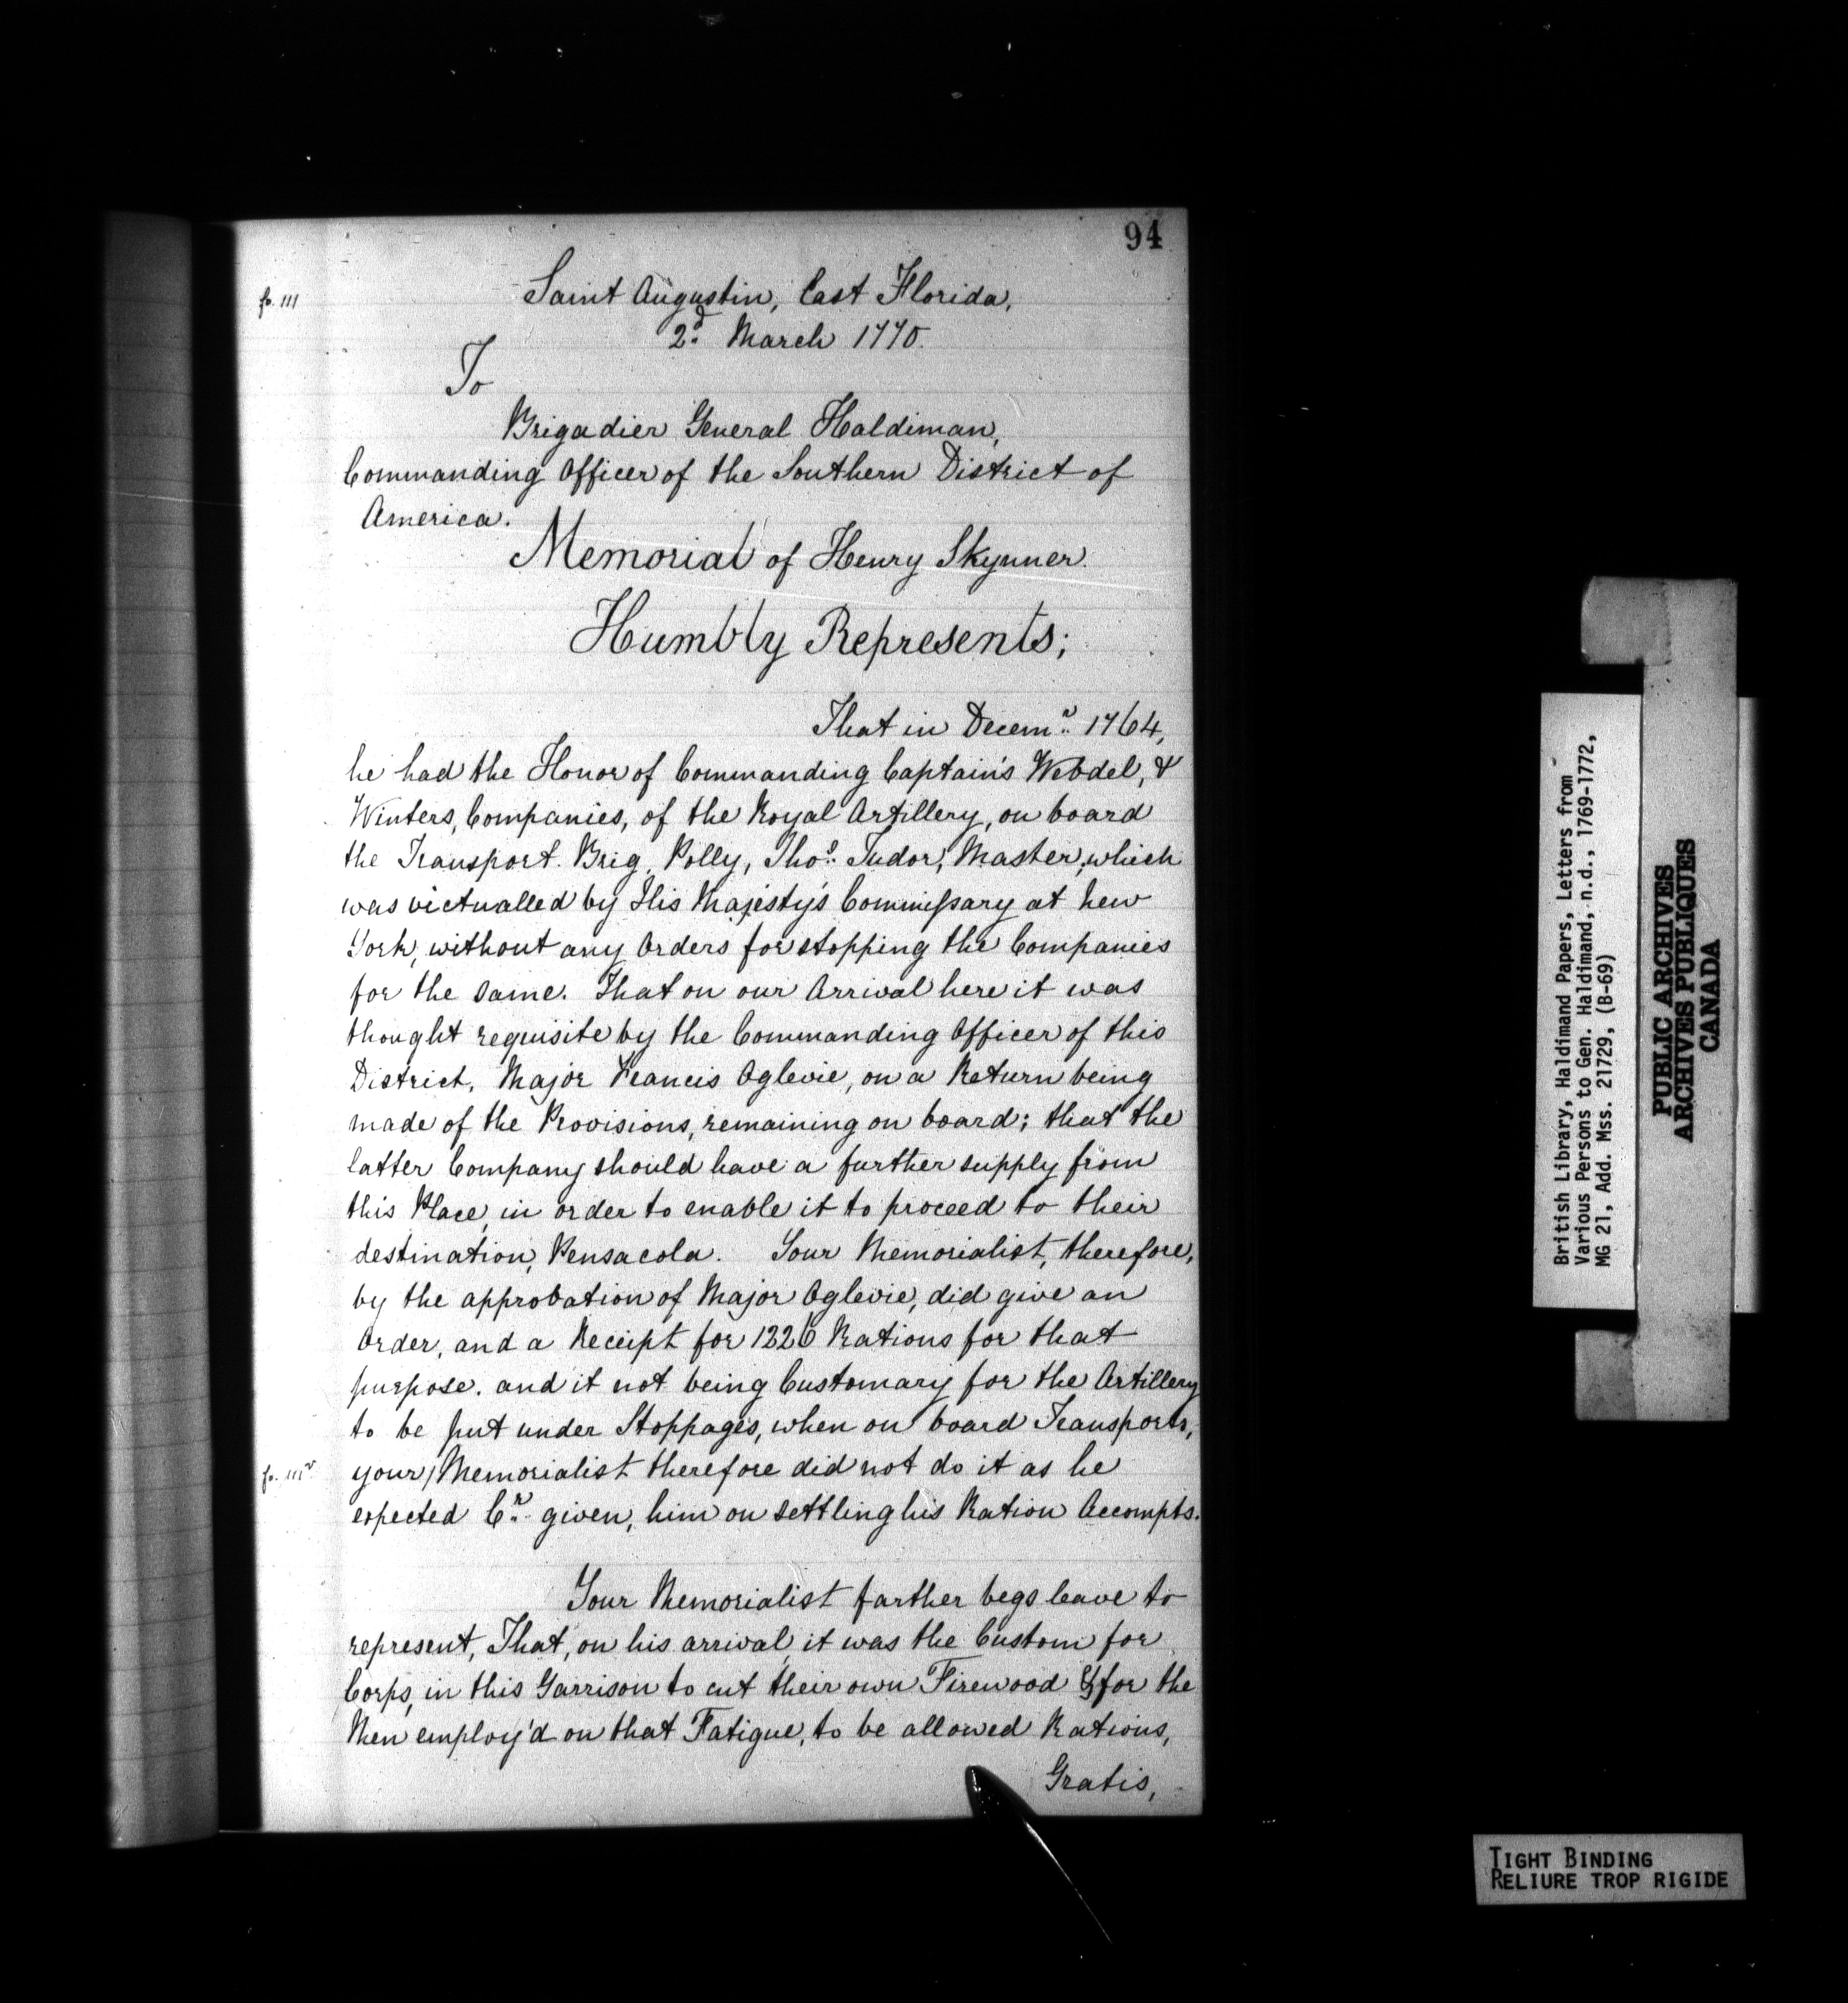 94
fo. 111
Saint Augustin, East Florida,
2d. March 1770.
To
Brigadier General Haldiman,
Commanding Officer of the Southern District of
America.
Memorial of Henry Skynner.
Humbly Represents;
That in Decemr. 1764,
he had the Honor of Commanding Captain's Webdel, &
Winters, Companies, of the Royal Artillery, on board
the Transport. Brig, Polly, Thos. Tudor, Master, which
was victualled by His Majesty's Commissary at New
York, without any Orders for stopping the Companies
for the same. That on our Arrival here it was
thought requisite by the Commanding Officer of this
District, Major Francis Oglevie, on a Return being
made of the Provisions, remaining on board; that the
latter Company should have a further supply from
this Place, in order to enable it to proceed to their
destination, Pensacola. Your Memorialist, therefore,
by the approbation of Major Oglevie, did give an
Order, and a Receipt for 1326 Rations for that
purpose. and it not being Customary for the Artillery
to be put under Stoppages, when on board Transports,
fo. 111v
your/Memorialist therefore did not do it as he
expected Cr. given, him on settling his Ration Accompts.
Your Memorialist farther begs leave to
represent, That, on his arrival, it was the Custom for
Corps, in this Garrison to cut their own Firewood & for the
Men employ'd on that Fatigue, to be allowed Rations,
Gratis,
British Library, Haldimand Papers, Letters from
Various Persons to Gen. Haldimand, n.d., 1769-1772,
MG 21, Add. Mss. 21729, (B-69)
PUBLIC ARCHIVES
ARCHIVES PUBLIQUES
CANADA
TIGHT BINDING
RELIURE TROP RIGIDE